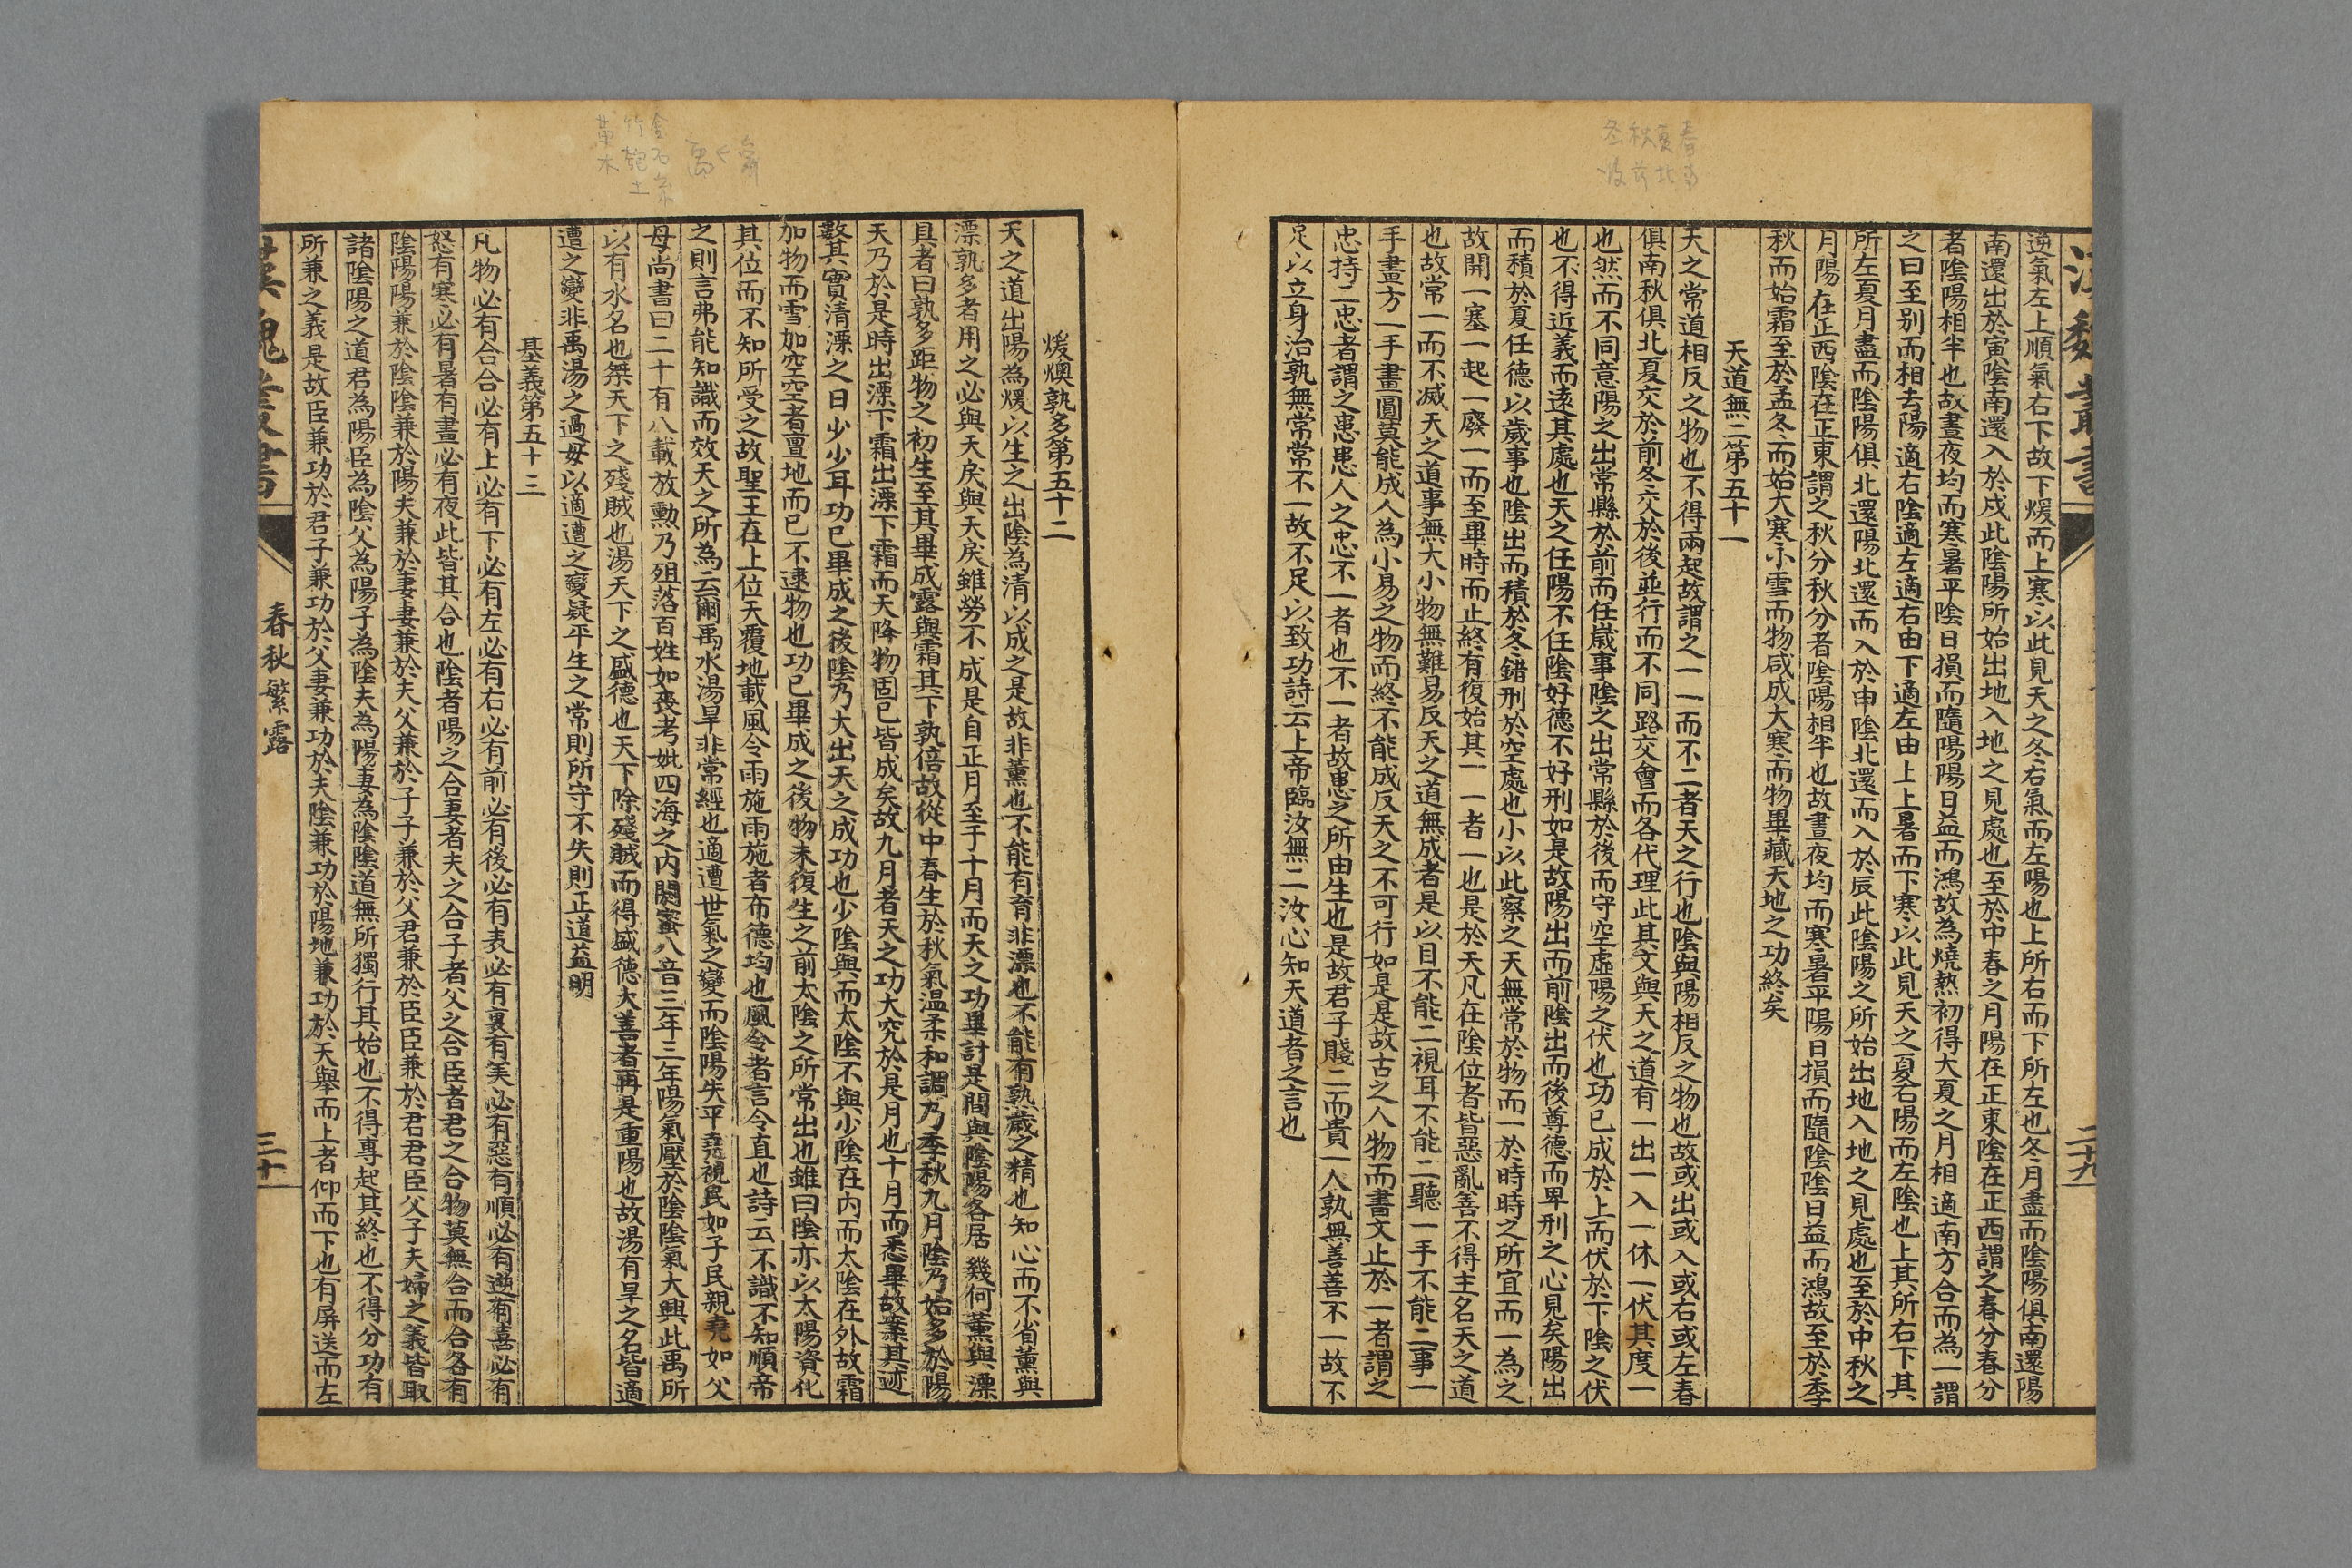 二十九
逆氣左上順氣右下故下煖而上寒以此見天之冬右氣而左陽也上所右而下所左也冬月盡而陰陽俱南還陽
南還出於寅陰南還入於戌此陰陽所始出地入地之見處也至於中春之月陽在正東陰在正西謂之春分春分
者陰陽相半也故晝夜均而寒暑平陰日損而隨陽陽日益而鴻故為燒熱初得大夏之月相適南方合而為一謂
之曰至别而相去陽適右陰適左適右由下適左由上上暑而下寒以此見天之夏右陽而左陰也上其所右下其
所左夏月盡而陰陽俱北還陽北還而入於申陰北還而入於辰此陰陽之所始出地入地之見處也至於中秋之
月陽在正西陰在正東謂之秋分秋分者陰陽相半也故晝夜均而寒暑平陽日損而隨陰陰日益而鴻故至於季
秋而始霜至於孟冬而始大寒小雪而物咸成大寒而物畢藏天地之功終矣
天道無二第五十一
天之常道相反之物也不得兩起故謂之一一而不二者天之行也陰與陽相反之物也故或出或入或右或左春
俱南秋俱北夏交於前冬交於後並行而不同路交會而各代理此其文與天之道有一出一入一休一伏其度一
也然而不同意陽之出常縣於前而任歲事陰之出常縣於後而守空虛陽之伏也功已成於上而伏於下陰之伏
也不得近義而遠其處也天之任陽不任陰好德不好刑如是故陽出而前陰出而後尊德而卑刑之心見矣陽出
而積於夏任德以歲事也陰出而積於冬錯刑於空處也小以此察之天無常於物而一於時時之所宜而一為之
故開一塞一起一廢一而至畢時而止終有復始其一一者一也是於天凡在陰位者皆惡亂善不得主名天之道
也故常一而不滅天之道事無大小物無難易反天之道無成者是以目不能二視耳不能二聽一手不能二事一
手畫方一手畫圓莫能成人為小易之物而終不能成反天之不可行如是是故古之人物而書文止於一者謂之
忠持二忠者謂之患患人之忠不一者也不一者故患之所由生也是故君子賤二而貴一人孰無善善不一故不
足以立身治孰無常常不一故不足以致功詩云上帝臨汝無二汝心知天道者之言也
煖燠孰多第五十二
天之道出陽為煖以生之出陰為清以成之是故非薰也不能有育非漂也不能有熟歲之精也知心而不省薰與
漂孰多者用之必與天戾與天戾雖勞不成是自正月至于十月而天之功畢計是間與陰陽各居幾何薰與漂
具者曰孰多距物之初生至其畢成露與霜其下孰倍故從中春生於秋氣温柔和調乃季秋九月陰乃始多於陽
天乃於是時出漂下霜出漂下霜而天降物固已皆成矣故九月者天之功大究於是月也十月而悉畢故案其迹
數其實清漂之日少少耳功已畢成之後陰乃大出天之成功也少陰與而太陰不與少陰在内而太陰在外故霜
加物而雪加空空者亶地而已不逮物也功已畢成之後物未復生之前太陰之所常出也雖曰陰亦以太陽資化
其位而不知所受之故聖王在上位天覆地載風令雨施雨施者布德均也風令者言令直也詩云不識不知順帝
之則言弗能知識而效天之所為云爾禹水湯旱非常經也適遭世氣之變而陰陽失平堯視民如子民親堯如父
母尚書曰二十有八載放勳乃殂落百姓如喪考妣四海之内閼蜜八音三年三年陽氣壓於陰陰氣大興此禹所
以有水名也桀天下之殘賊也湯天下之盛德也天下除殘賊而得盛德大善者再是重陽也故湯有旱之名皆適
遭之變非禹湯之過毋以適遭之變疑平生之常則所守不失則正道益明
基義第五十三
凡物必有合合必有上必有下必有左必有右必有前必有後必有表必有裏有美必有惡有順必有逆有喜必有
怒有寒必有暑有晝必有夜此皆其合也陰者陽之合妻者夫之合子者父之合臣者君之合物莫無合而合各有
陰陽陽兼於陰陰兼於陽夫兼於妻妻兼於夫父兼於子子兼於父君兼於臣臣兼於君君臣父子夫婦之義皆取
諸陰陽之道君為陽臣為陰父為陽子為陰夫為陽妻為陰陰道無所獨行其始也不得專起其終也不得分功有
所兼之義是故臣兼功於君子兼功於父妻兼功於夫陰兼功於陽地兼功於天舉而上者仰而下也有屏送而左
漢魏叢書
春秋繁露
三十